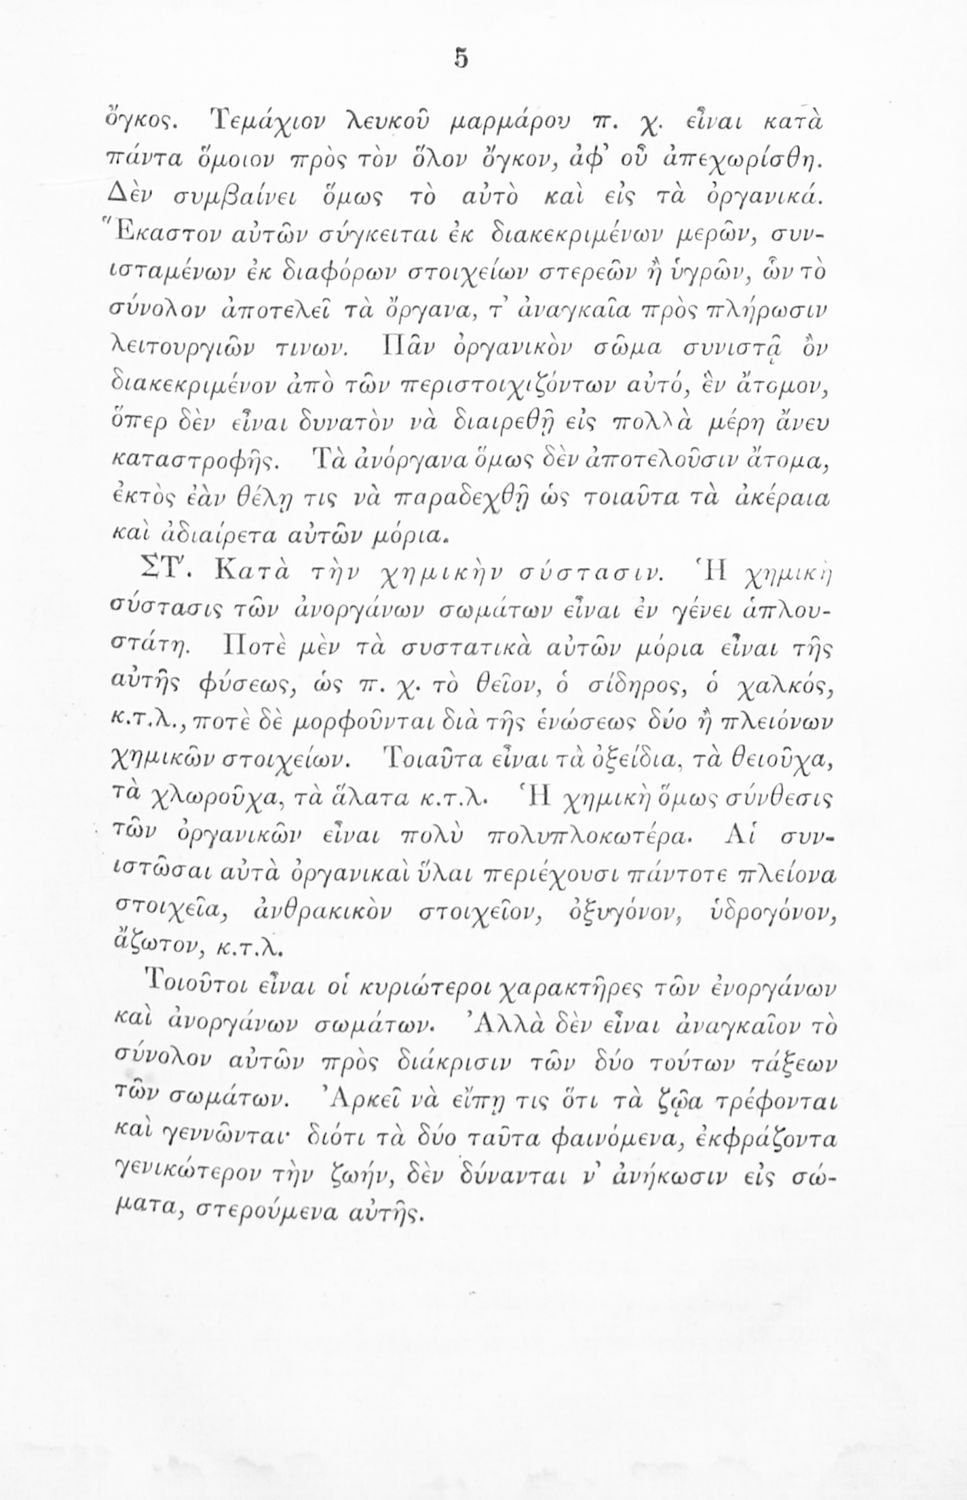 5
ὄγκος. Τεμάχιον λευκοῦ μαρμάρου π. χ. εἶναι κατὰ
πάντα ὅμοιον πρὸς τὸν ὅλον ὄγκον, ἀφ’ οὗ ἀπεχωρίσθη.
Δὲν συμβαίνει ὅμως τὸ αὐτὸ καὶ εἰς τὰ ὀργανικά.
Ἕκαστον αὐτῶν σύγκειται ἐκ διακεκριμένων μερῶν, συν-
ισταμένων ἐκ διαφόρων στοιχείων στερεῶν ἢ ὑγρῶν, ὧν τὸ
σύνολον ἀποτελεῖ τὰ ὄργανα, τ’ ἀναγκαῖα πρὸς πλήρωσιν
λειτουργιῶν τινων. Πᾶν ὀργανικὸν σῶμα συνιστᾷ ὂν
διακεκριμένον ἀπὸ τῶν περιστοιχιζόντων αὐτό, ἓν ἄτομον,
ὅπερ δὲν εἶναι δυνατὸν νὰ διαιρεθῇ εἰς πολλὰ μέρη ἄνευ
καταστροφῆς. Τὰ ἀνόργανα ὅμως δὲν ἀποτελοῦσιν ἄτομα,
ἐκτὸς ἐὰν θέλῃ τις νὰ παραδεχθῇ ὡς τοιαῦτα τὰ ἀκέραια
καὶ ἀδιαίρετα αὐτῶν μόρια.
ΣΤ΄. Κατὰ τὴν χημικὴν σύστασιν. Ἡ χημικὴ
σύστασις τῶν ἀνοργάνων σωμάτων εἶναι ἐν γένει ἁπλου-
στάτη. Ποτὲ μὲν τὰ συστατικὰ αὐτῶν μόρια εἶναι τῆς
αὐτῆς φύσεως, ὡς π. χ. τὸ θεῖον, ὁ σίδηρος, ὁ χαλκός,
κ.τ.λ., ποτὲ δὲ μορφοῦνται διὰ τῆς ἑνώσεως δύο ἢ πλειόνων
χημικῶν στοιχείων. Τοιαῦτα εἶναι τὰ ὀξείδια, τὰ θειοῦχα,
τὰ χλωροῦχα, τὰ ἅλατα κ.τ.λ. Ἡ χημικὴ ὅμως σύνθεσις
τῶν ὀργανικῶν εἶναι πολὺ πολυπλοκωτέρα. Αἱ συν-
ιστῶσαι αὐτὰ ὀργανικαὶ ὕλαι περιέχουσι πάντοτε πλείονα
στοιχεῖα, ἀνθρακικὸν στοιχεῖον, ὀξυγόνον, ὑδρογόνον,
ἄζωτον, κ.τ.λ.
Τοιοῦτοι εἶναι οἱ κυριώτεροι χαρακτῆρες τῶν ἐνοργάνων
καὶ ἀνοργάνων σωμάτων. Ἀλλὰ δὲν εἶναι ἀναγκαῖον τὸ
σύνολον αὐτῶν πρὸς διάκρισιν τῶν δύο τούτων τάξεων
τῶν σωμάτων. Ἀρκεῖ νὰ εἴπῃ τις ὅτι τὰ ζῷα τρέφονται
καὶ γεννῶνται· διότι τὰ δύο ταῦτα φαινόμενα, ἐκφράζοντα
γενικώτερον τὴν ζωήν, δὲν δύνανται ν’ ἀνήκωσιν εἰς σώ-
ματα, στερούμενα αὐτῆς.